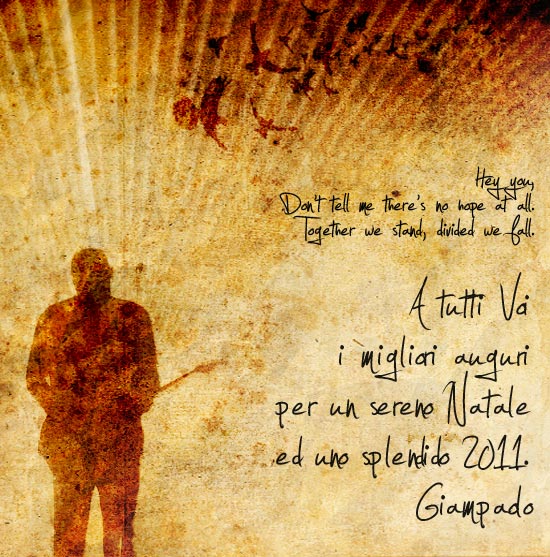 Hey you,
Don't tell me there's no hope at all.
Together we stand, divided we fall.
A tutti Voi
i migliori auguri
per un sereno Natale
ed uno splendido 2011.
Giampado